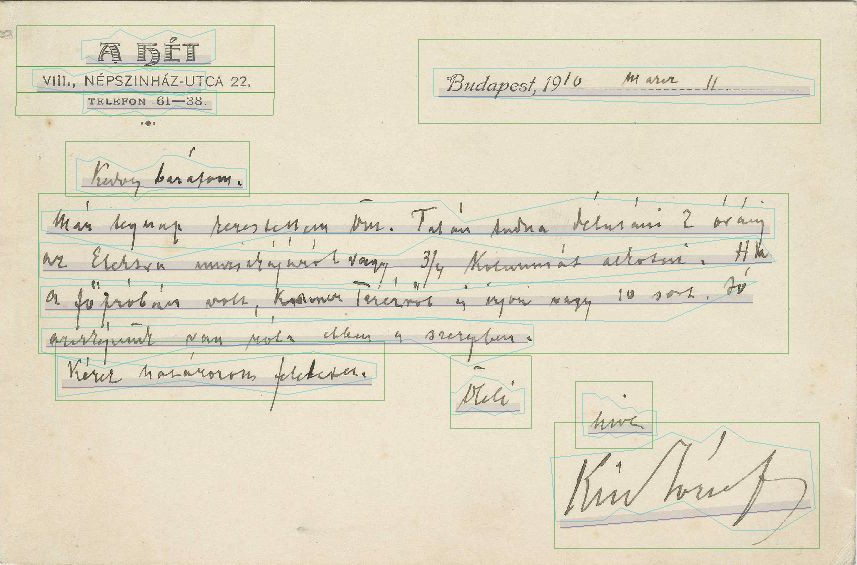 A HÉT
VIII., NÉPSZINHÁZ-UTCA 22.
TELEFON 61—38.
Budapest, 1910 marcz 11
Kedves barátom.
Már tegnap kerestettem Önt. Talán tudna délutáni 2 óráig
az Elektra muzsikájáról vagy 3/4 Kolumnát alkotni. Ha
a főpróbán volt, Teréziről is írjon vagy 10 sort. Jó
arczképünk van róla ebben a szerepben.
Kérek határozott feleletet.
Üdvözli
hive
József